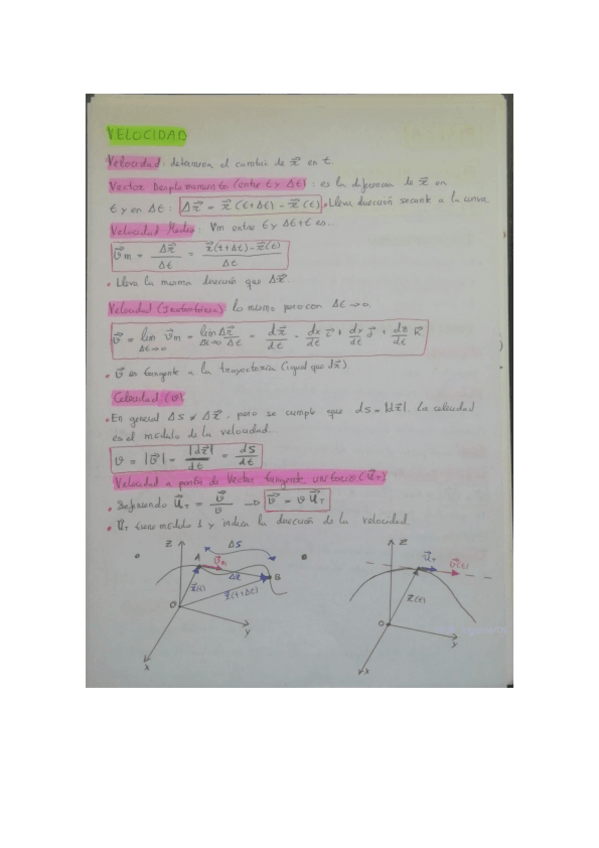 VELOCIDAD
Velocidad: determina el cambio de r⃗ en t.
Vector Desplazamiento (entre t y Δt): es la diferencia de r⃗ en
t y en Δt: Δr⃗ = r⃗(t+Δt) - r⃗(t) • Lleva dirección secante a la curva
Velocidad Media: Vm entre t y Δt+t es...
v⃗m = Δr⃗/Δt = r⃗(t+Δt)-r⃗(t)/Δt
• Lleva la misma dirección que Δr⃗.
Velocidad (Instantánea) lo mismo pero con Δt→0.
v⃗ = lim Δt→0 v⃗m = lim Δt→0 Δr⃗/Δt = dr⃗/dt = dx/dt i⃗ + dy/dt j⃗ + dz/dt k⃗
• v⃗ es tangente a la trayectoria (igual que dr⃗).
Celeridad (v).
• En general Δs ≠ Δr⃗, pero se cumple que ds = |dr⃗|. La celeridad
es el módulo de la velocidad...
v = |v⃗| = |dr⃗|/dt = ds/dt
Velocidad a partir de Vector tangente unitario (u⃗T)
• Definiendo u⃗T = v⃗/v → v⃗ = v u⃗T
• u⃗T tiene módulo 1 y indica la dirección de la velocidad.
Z A Δs v⃗m B
r⃗(t) Δr⃗ r⃗(t+Δt)
O
Y
X
Z u⃗T v⃗(t)
r⃗(t)
O
Y
X